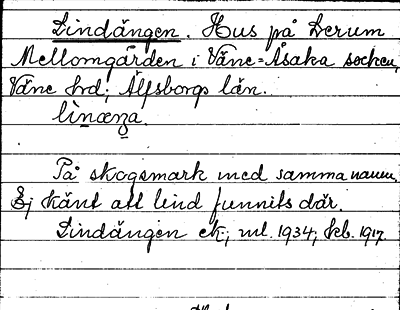 Lindängen. Hus på Lerum
Mellomgården i Väne-Åsaka socken,
Väne hrd; Älfsborgs län.
På skogsmark med samma namn,
Ej känt att lind funnits där.
Lindängen ek; ml. 1934; feb. 1917.